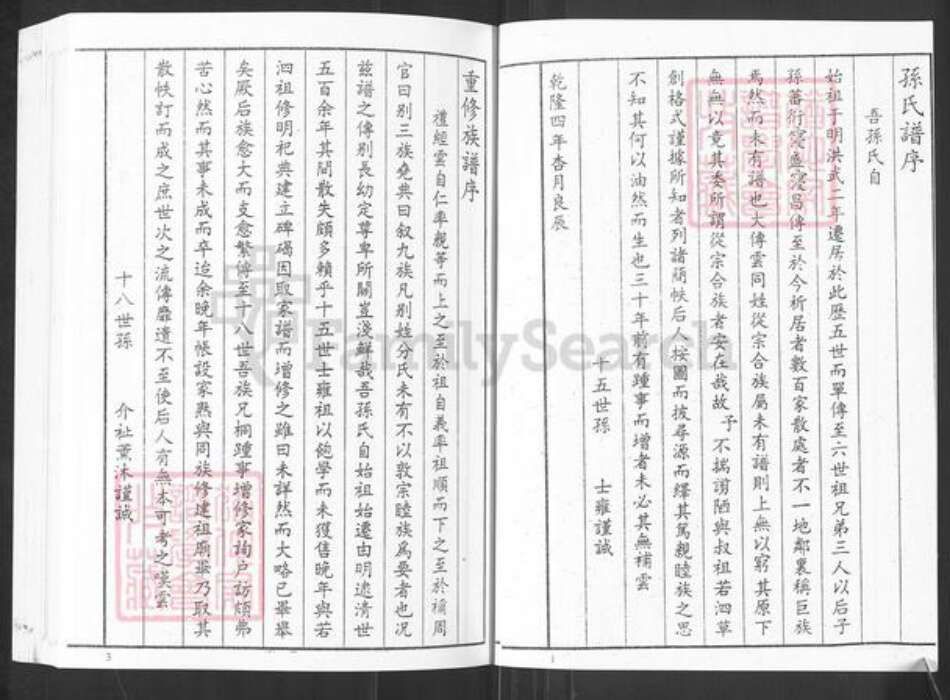 孫氏譜序
吾孫氏自
始祖于明洪武二年遷居於此歷五世而單傳至六世祖兄弟三人以后子
孫蕃衍寖盛寖昌傳至於今析居者數百家散處者不一地鄰裏稱巨族
焉然而未有譜也大傳雲同姓從宗合族屬未有譜則上無以窮其原下
無以竟其委所謂從宗合族者安在哉故予不揣謭陋與叔祖若泗草
創格式謹據所知者列諸簡帙后人按圖而披尋源而繹其篤親睦族之思
不知其何以油然而生也三十年前有踵事而增者未必其無補雲
十五世孫 士雍謹誠
乾隆四年杏月良辰
1
重修族譜序
禮經雲自仁率親等而上之至於祖自義率祖順而下之至於禰周
官曰別三族堯典曰叙九族凡別姓分氏未有不以敦宗睦族爲要者也况
兹譜之傳別長幼定尊卑所關豈淺鮮哉吾孫氏自始祖始遷由明逮清世
五百余年其間散失頗多賴乎十五世士雍祖以飽學而未獲售晚年與若
泗祖修明祀典建立碑碣因取家譜而增修之雖曰未詳然而大略已畢舉
矣厥后族愈大而支愈繁傳至十八世吾族兄桐踵事增修家詢户訪頗弗
苦心然而其事未成而卒迨余晚年帳設家熟與同族修建祖廟畢乃取其
散帙訂而成之庶世次之流傳靡遺不至使后人有無本可考之嘆雲
十八世孫 介祉薰沐謹誠
3
FamilySearch